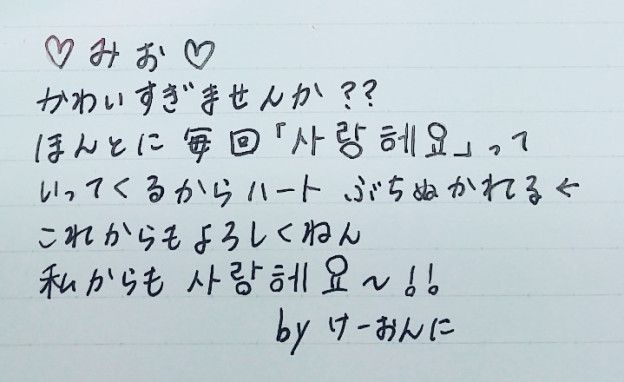 ♡みお♡
かわいすぎませんか??
ほんとに毎回「사랑헤요」って
いってくるからハートぶちぬかれてる←
これからもよろしくねん
私からも 사랑헤요~!!
by けーおんに